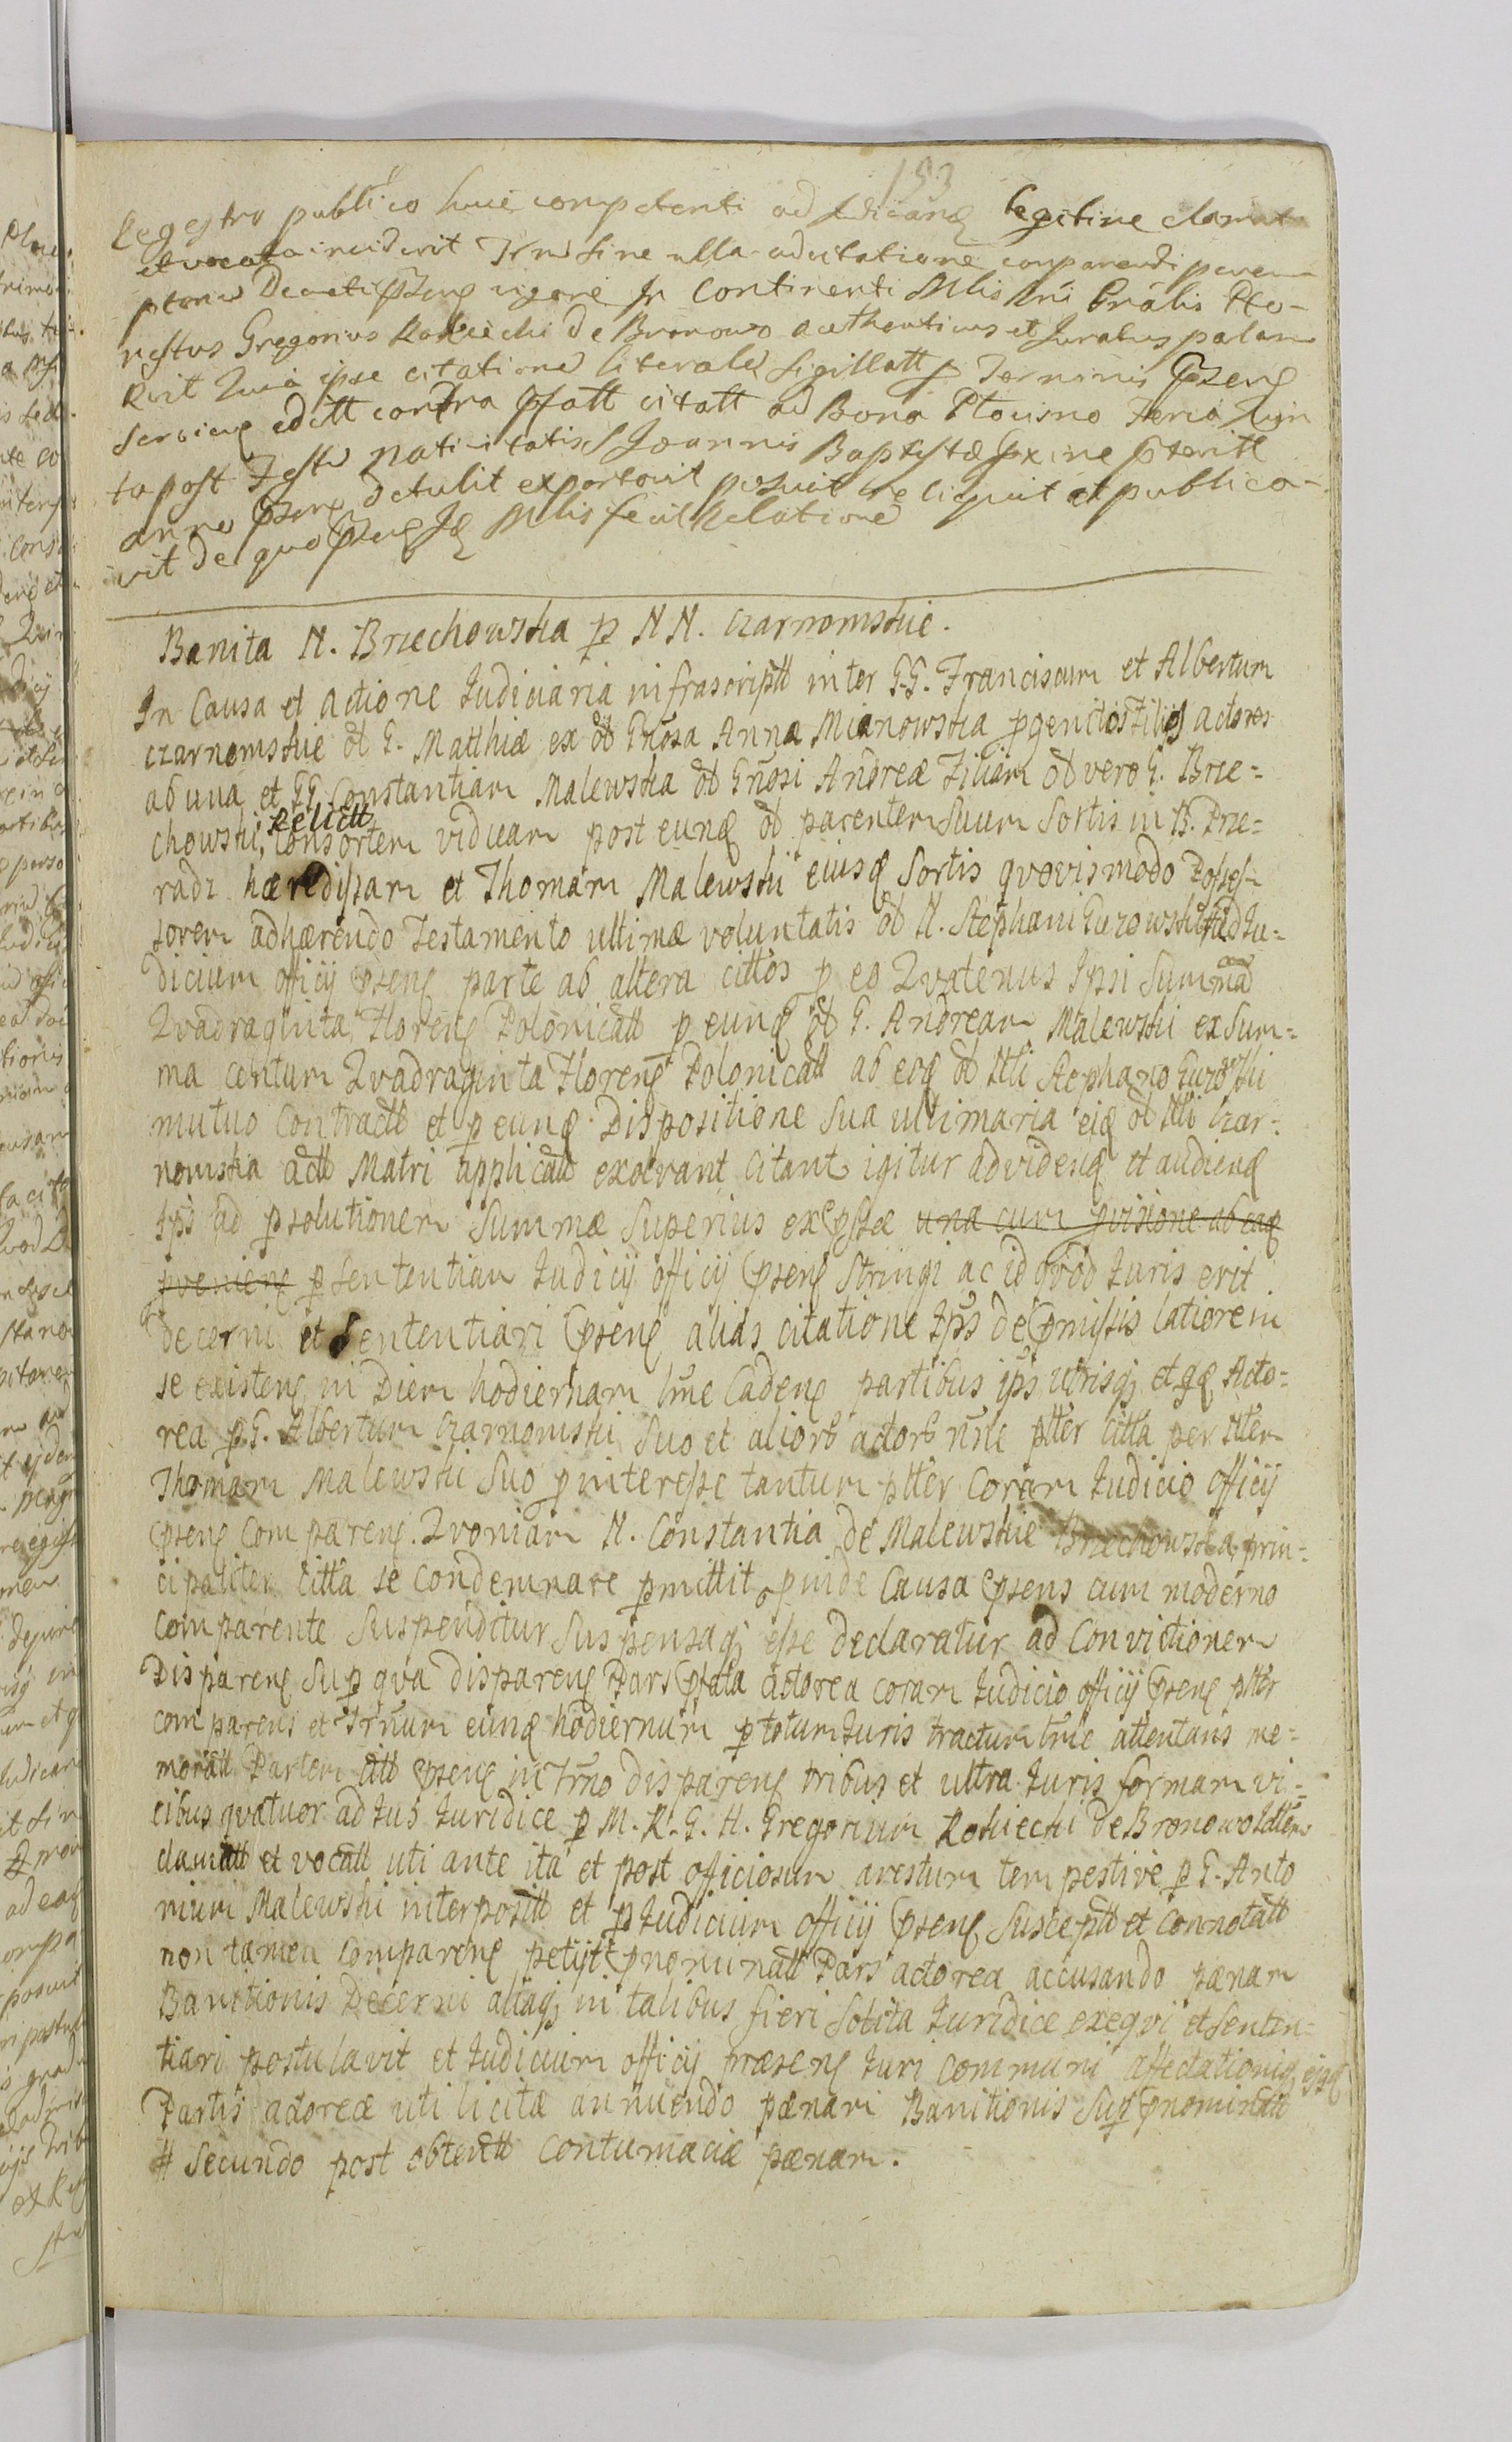 153
Regestro publico huic competenti ad Judicanḡ legitime clamata
et vocata inciderit Trnũ sine ulla adcitatione comparendi perem
ptoriũ Decreti p̃senḡ vigore In Continenti Mlis Rni Gnãlis Pło-
nestus Gregorius Rokiecki de Bronowo authenticus et Juratus palam
Rvit Quia ipse citationẽ literalẽ sigillatt p Terminis p̃senḡ
servienḡ editt contra p̃fatt citatt ad Bona Płocisno Feria Quin
ta post Festũ Nativitatis S Joannis Baptistæ p̃xime p̃teritt
anno p̃senḡ detulit exportavit posuit reliquit et publica-
vit de quo p̃senḡ Mlis fecit Relationẽ
Banita N. Brzechowska p NN. Czarnomskie.
In Causa et actione Judiciaria infrascriptt inter GG. Franciscum et Albertum
Czarnomskie ol̃ G. Matthiæ ex ol̃ Gñosa Anna Mianowska pgenitos Filios actores
ab una et GG. Constantiam Malewska ol̃ Gñosi Andreæ Filiam ol̃ vero G. Brze=
chowski, relictt Consortem viduam post eunḡ ol̃ parentem suum Sortis in B. Prze=
radz hæredissam et Thomam Malewski eiusḡ Sortis quovismodo Posses=
sorem adhærendo Testamento ultimæ voluntatis ol̃ N. Stephani Gurowski # ad Ju=
dicium officij p̃senḡ parte ab altera cittos p eo Quatenus Ipsi Summã
Quadraginta Florenḡ Polonicatt p eunḡ ol̃ G. Andream Malewski ex Sum=
ma centum Quadraginta Florenḡ Polonicatt ab eoḡ ol̃ Ntli Stephano Gurowski
mutuo Contractt et p eunḡ Dispositione Sua ultimaria eiḡ ol̃ Ntli Czar=
nomska actt Matri applicatt exolvant, citant igitur ad videnḡ et audienḡ
Ips̃ ad psolutionem Summæ Superius exp̃ssæ una cum pvisione ab eaḡ
pvenienḡ p sententiam Judicij officij p̃senḡ Stringi ac id quod Juris erit
decerni et Sententiari p̃senḡ alias citatione Ips̃ de p̃missis latiorem
se existenḡ in Diem hodiernam lr̃me Cadenḡ partibus ips̃ utrisq; et qḡ Acto=
rea p G. Albertum Czarnomski Suo et aliorũ actorũ nñe plter Citta per Ntlem
Thomam Malewski Suo pinteresse tantum plter Coram Judicio officij
p̃senḡ Comparenḡ. Quoniam N. Constantia de Malewskie Brzechowska prin=
cipaliter Citta se Condemnare pmittit, pinde Causa p̃sens cum moderno
comparente Suspenditur Suspensaq; esse declaratur ad Convictionem
Disparenḡ Sup qua disparenḡ Pars p̃fata actorea coram Judicio officij p̃senḡ plter
comparens et Trñum eunḡ hodiernum p totum Juris tractum lr̃me attentans me=
moratt Partem citt p̃senḡ in Trño disparenḡ tribus et ultra Juris formam vi=
cibus quatuor ad Jus Juridice p M. R. G. N. Gregorium Rokiecki de Bronowo
clamatt et vocatt uti ante ita et post officiosum arestum tempestive p G. Anto
nium Malewski interpositt et p Judicium officij p̃senḡ Susceptt et Connotatt
non tamen comparenḡ petijt p̃nominatt Pars actorea accusando pænam
Banitionis Decerni aliaq; in talibus fieri Solita Juridice exequi et Senten=
tiari postulavit et Judicium officij præsenḡ Juri Communi affectationiq; ejḡ
Partis actoreæ uti licitæ annuendo pænam Banitionis Sup p̃nominatt
# Secundo post obtentt Contumaciæ pænam.